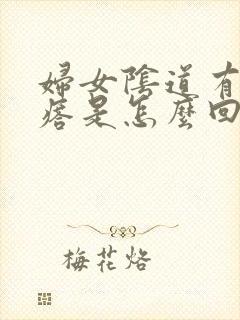 婦女陰道有
痞是怎麼回
梅花烙